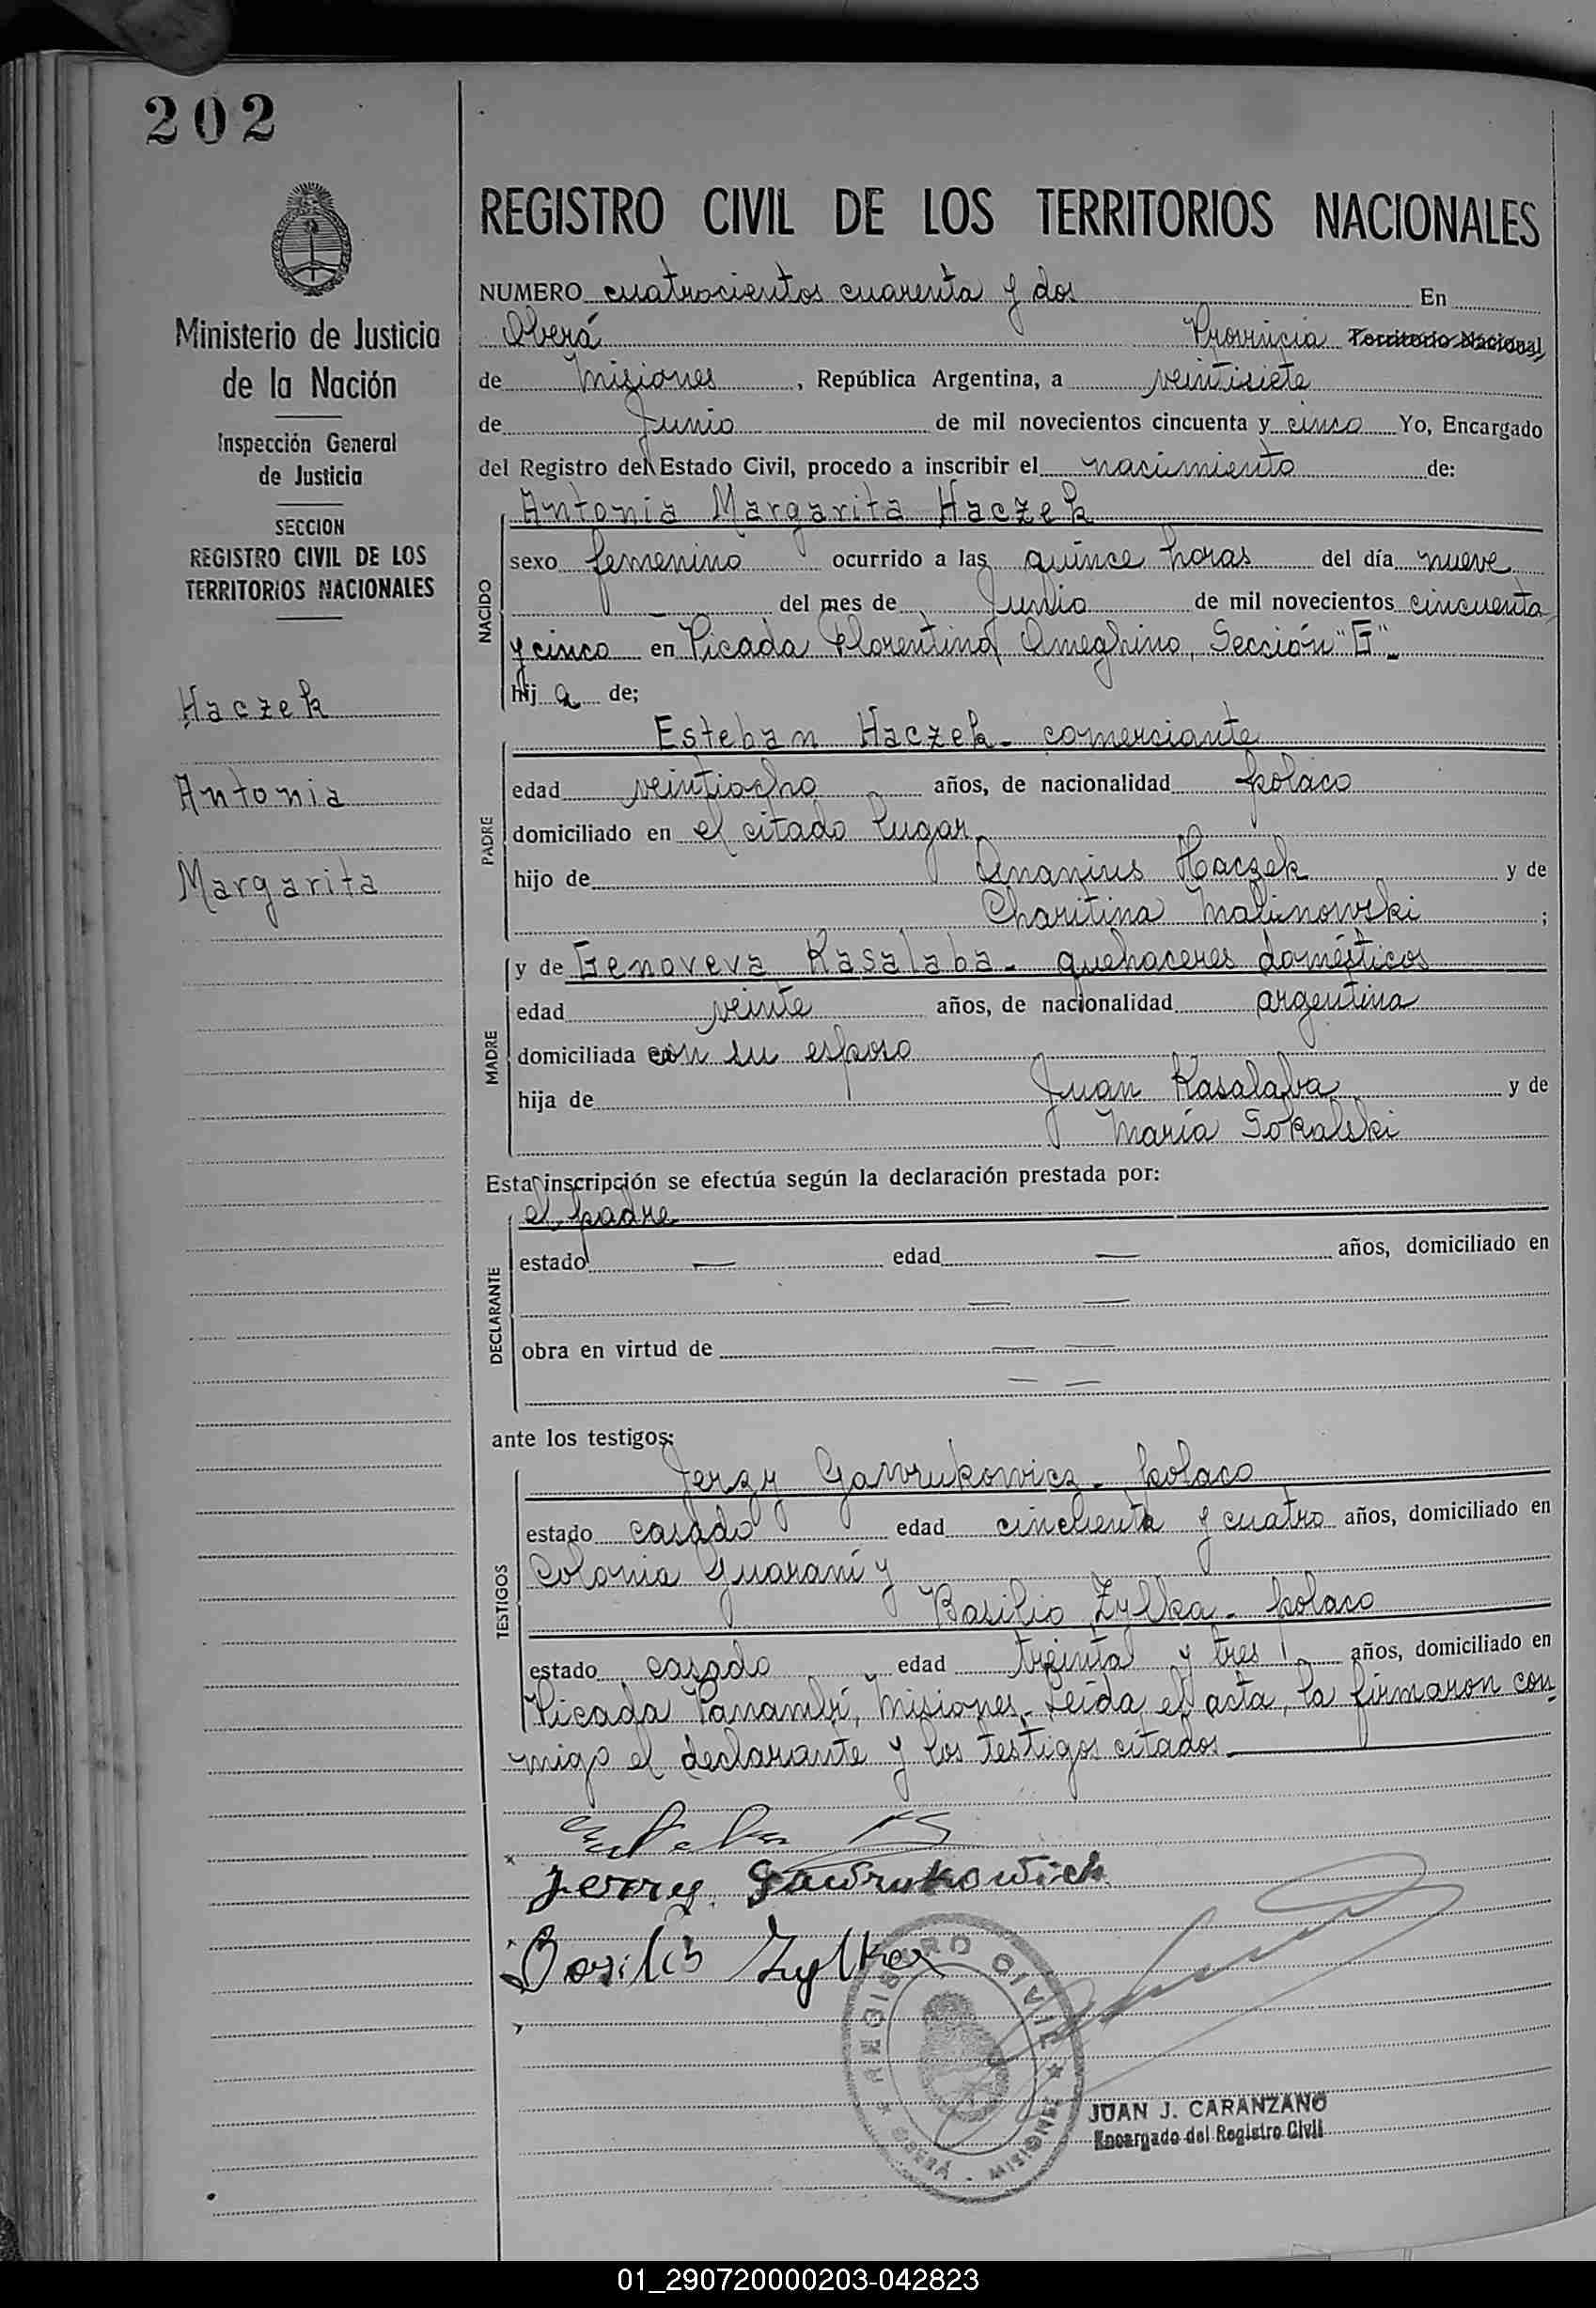 202
Ministerio de Justicia
de la Nación
Inspección General
de Justicia
SECCION
REGISTRO CIVIL DE LOS
TERRITORIOS NACIONALES
Haczek
Antonia
Margarita
REGISTRO CIVIL DE LOS TERRITORIOS NACIONALES
NUMERO cuatrocientos cuarenta y dos En
Oberá Provincia Territorio Nacional
de Misiones, República Argentina, a veintisiete
de Junio de mil novecientos cincuenta y cinco Yo, Encargado
del Registro del Estado Civil, procedo a inscribir el nacimiento de:
Antonia Margarita Haczek
NACIDO
sexo femenino ocurrido a las quince horas del día nueve
— del mes de Junio de mil novecientos cincuenta
y cinco en Picada Florentino Ameghino, Sección
hija de;
Esteban Haczek - comerciante
PADRE
edad veintiocho años, de nacionalidad polaco
domiciliado en el citado lugar
hijo de Ananius Haczek y de
Charitina Malinowski ;
y de Genoveva Kasalaba - quehaceres domésticos
MADRE
edad veinte años, de nacionalidad argentina
domiciliada con su esposo
hija de Juan Kasalaba y de
María Sokalski
Esta inscripción se efectúa según la declaración prestada por:
el padre
DECLARANTE
estado — edad — años, domiciliado en
— —
obra en virtud de — —
— —
ante los testigos:
Jerzy Gawrukowicz - polaco
TESTIGOS
estado casado edad cincuenta y cuatro años, domiciliado en
Colonia Guaraní y
Basilio Zylka - polaco
estado casado edad treinta y tres años, domiciliado en
Picada Panambí, Misiones. Leída el acta, la firmaron con
migo el declarante y los testigos citados.
Jerzy Gawrukowich
Basilio Zylka
REGISTRO CIVIL
OBERÁ - MISIONES
JUAN J. CARANZANO
Encargado del Registro Civil
01_290720000203-042823